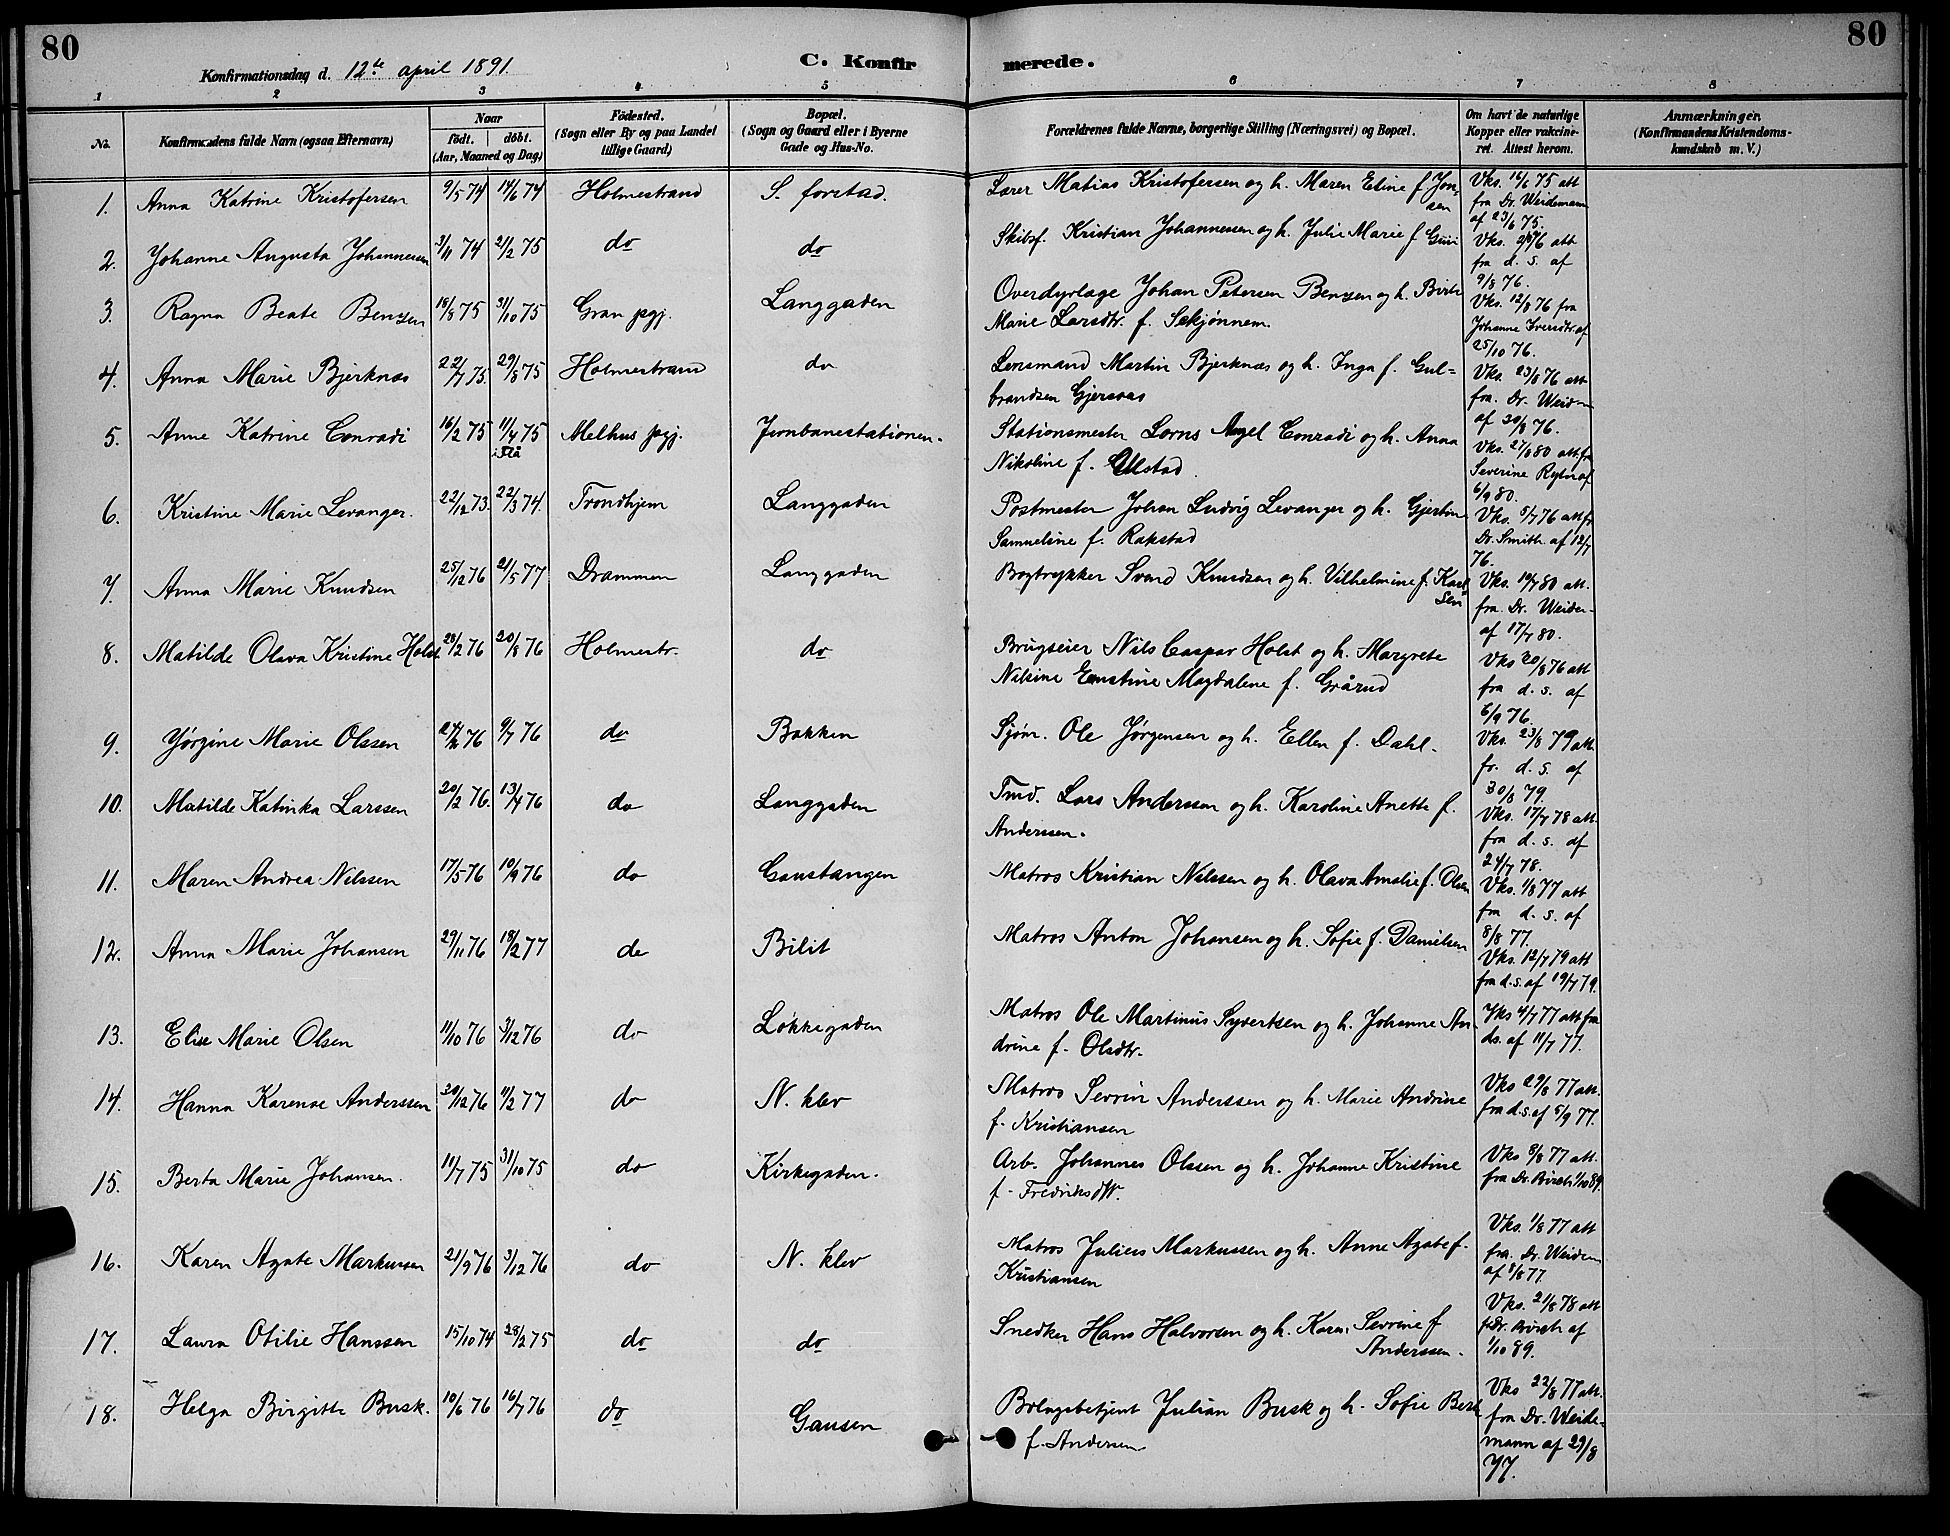 80
80
Konfirmationsdag d. 12te april 1891.
C. Konfirmerede.
1 2 3 4 5 6 7 8
No.
Konfirmandens fulde Navn (ogsaa Efternavn)
Naar
født. døbt.
(Aar, Maaned og Dag)
Fødested.
(Sogn eller By og paa Landet
tillige Gaard)
Bopæl.
(Sogn og Gaard eller i Byerne
Gade og Hus-No.
Forældrenes fulde Navne, borgerlige Stilling (Næringsvei) og Bopæl.
Om havt de naturlige
Kopper eller vakcine-
ret. Attest herom.
Anmærkninger.
(Konfirmandens Kristendoms-
kundskab m. V.)
1. Anna Katrine Kristofersen 9/5 74 14/6 74 Holmestrand S. forstad. Lærer Matias Kristofersen og h. Maren Eline f. Jon-
sen
Vks. 16/6 75 att
fra Dr. Weidemann
af 23/6 75.
2. Johanne Augusta Johannesen 3/11 74 21/2 75 do do Skibsf. Kristian Johannessen og h. Julie Marie f.
Vks. 2/8 76 att
fra d. s. af
9/8 76.
3. Ragna Beate Benzen 18/8 75 31/10 75 Gran pgj. Langgaden Overdyrlæge Johan Petersen Benzen og h. Birte
Marie Larsdtr. f. Sekjønnem.
Vks. 12/8 76 fra
Johanne Iversdtr. af
25/10 76.
4. Anna Marie Bjerknæs 22/7 75. 29/8 75 Holmestrand do Lensmand Martin Bjerknæs og h. Inga f. Gul-
brandsen
Vks. 23/8 76 att
fra. Dr. Weidem
af 30/8 76.
5. Anne Katrine Conradi 16/2 75 11/4 75 Melhus pgj. Jernbanestationen.
i Flå
Stationsmester Lorns Angel Conradi og h. Anna
Nikoline f. Ulstad.
Vks. 27/8 80 att. fra
Severine af
6/9 80.
6. Kristine Marie Levanger. 22/12 73. 22/3 74. Trondhjem Langgaden Postmester Johan Ludvig Levanger og h. Gjertine
Samueline f. Rakstad
Vks. 5/7 76 att. fr
Dr. Smith. af 12/7
76.
7. Anna Marie Knudsen 25/12 76 21/5 77 Drammen Langgaden Bogtrykker Svend Knudsen og h. Vilhelmine f. Karl-
sen
Vks. 10/7 80 att.
fra. Dr. Weider-
af 17/7 80.
8. Matilde Olava Kristine Holst 28/2 76 20/8 76 Holmestr. do Brugseier Nils Caspar Holst og h. Margrete
Nilsine Ernstine Magdalene f. Grårud
Vks 30/8 76 att
fra d. s. af
6/9 76.
9. Jørgine Marie Olssen 76 9/7 76 do Bakken Sjøm. Ole Jørgensen og h. Ellen f. Dahl.
Vks. 23/8 79 att.
fr. d. s. af
30/8 79.
10. Matilde Katinka Larssen 20/2 76. 13/4 76 do Langgaden Tmd. Lars Anderssen og h. Karoline Anette f.
Anderssen.
Vks. 17/7 78 att.
fra d. s. af
24/7 78.
11. Maren Andrea Nilssen 17/5 76 10/9 76 do Gaustangen Matros Kristian Nilssen og h. Olava Amalie f. Olsen
Vks. 1/8 77 att
fra d. s. af
8/8 77.
12. Anna Marie Johansen 29/11 76 18/2 77 do Bilit Matros Anton Johansen og h. Sofie f. Danielsen
Vks. 12/7 79 att
fra d. s. af 19/7 79.
13. Elise Marie Olsen 11/10 76 3/12 76 do Løkkegaden Matros Ole Martinus Syvertsen og h. Johanne An-
drine f. Olsdtr.
Vks 4/7 77 att fra
ds. af 11/7 77.
14. Hanna Karense Anderssen 29/12 76 11/2 77 do N. klev Matros Sevrin Anderssen og h. Marie Andrine
f. Kristiansen
Vks 29/8 77 att.
fra d.s. af 5/9 77.
15. Berta Marie Johansen. 11/7 75 31/10 75 do Kirkegaden. Arb. Johannes Olssen og h. Johanne Kristine
f. Fredriksdtr.
Vks 8/8 77 att.
fra Dr. Birch 1/10 89.
16. Karen Agate Markussen 21/9 76 3/12 76 do N. klev Matros Julius Markussen og h. Anne Agate f.
Kristiansen
Vks. 1/8 77 att
fra. Dr. Weidem
af 8/8 77.
17. Laura Otilie Hanssen 15/10 74 28/2 75 do do Snedker Hans Halvorsen og h. Karen Sevrine f
Anderssen.
Vks. 21/8 78 att
f. Dr. Birch af
1/10 89.
18. Helga Birgitte Busk. 10/6 76 16/7 76 do Gausen Bolagsbetjent Julian Busk og h. Sofie Berte
f. Andersen
Vks 22/8 77 att.
fra Dr. Weide-
mann af 29/8
77.